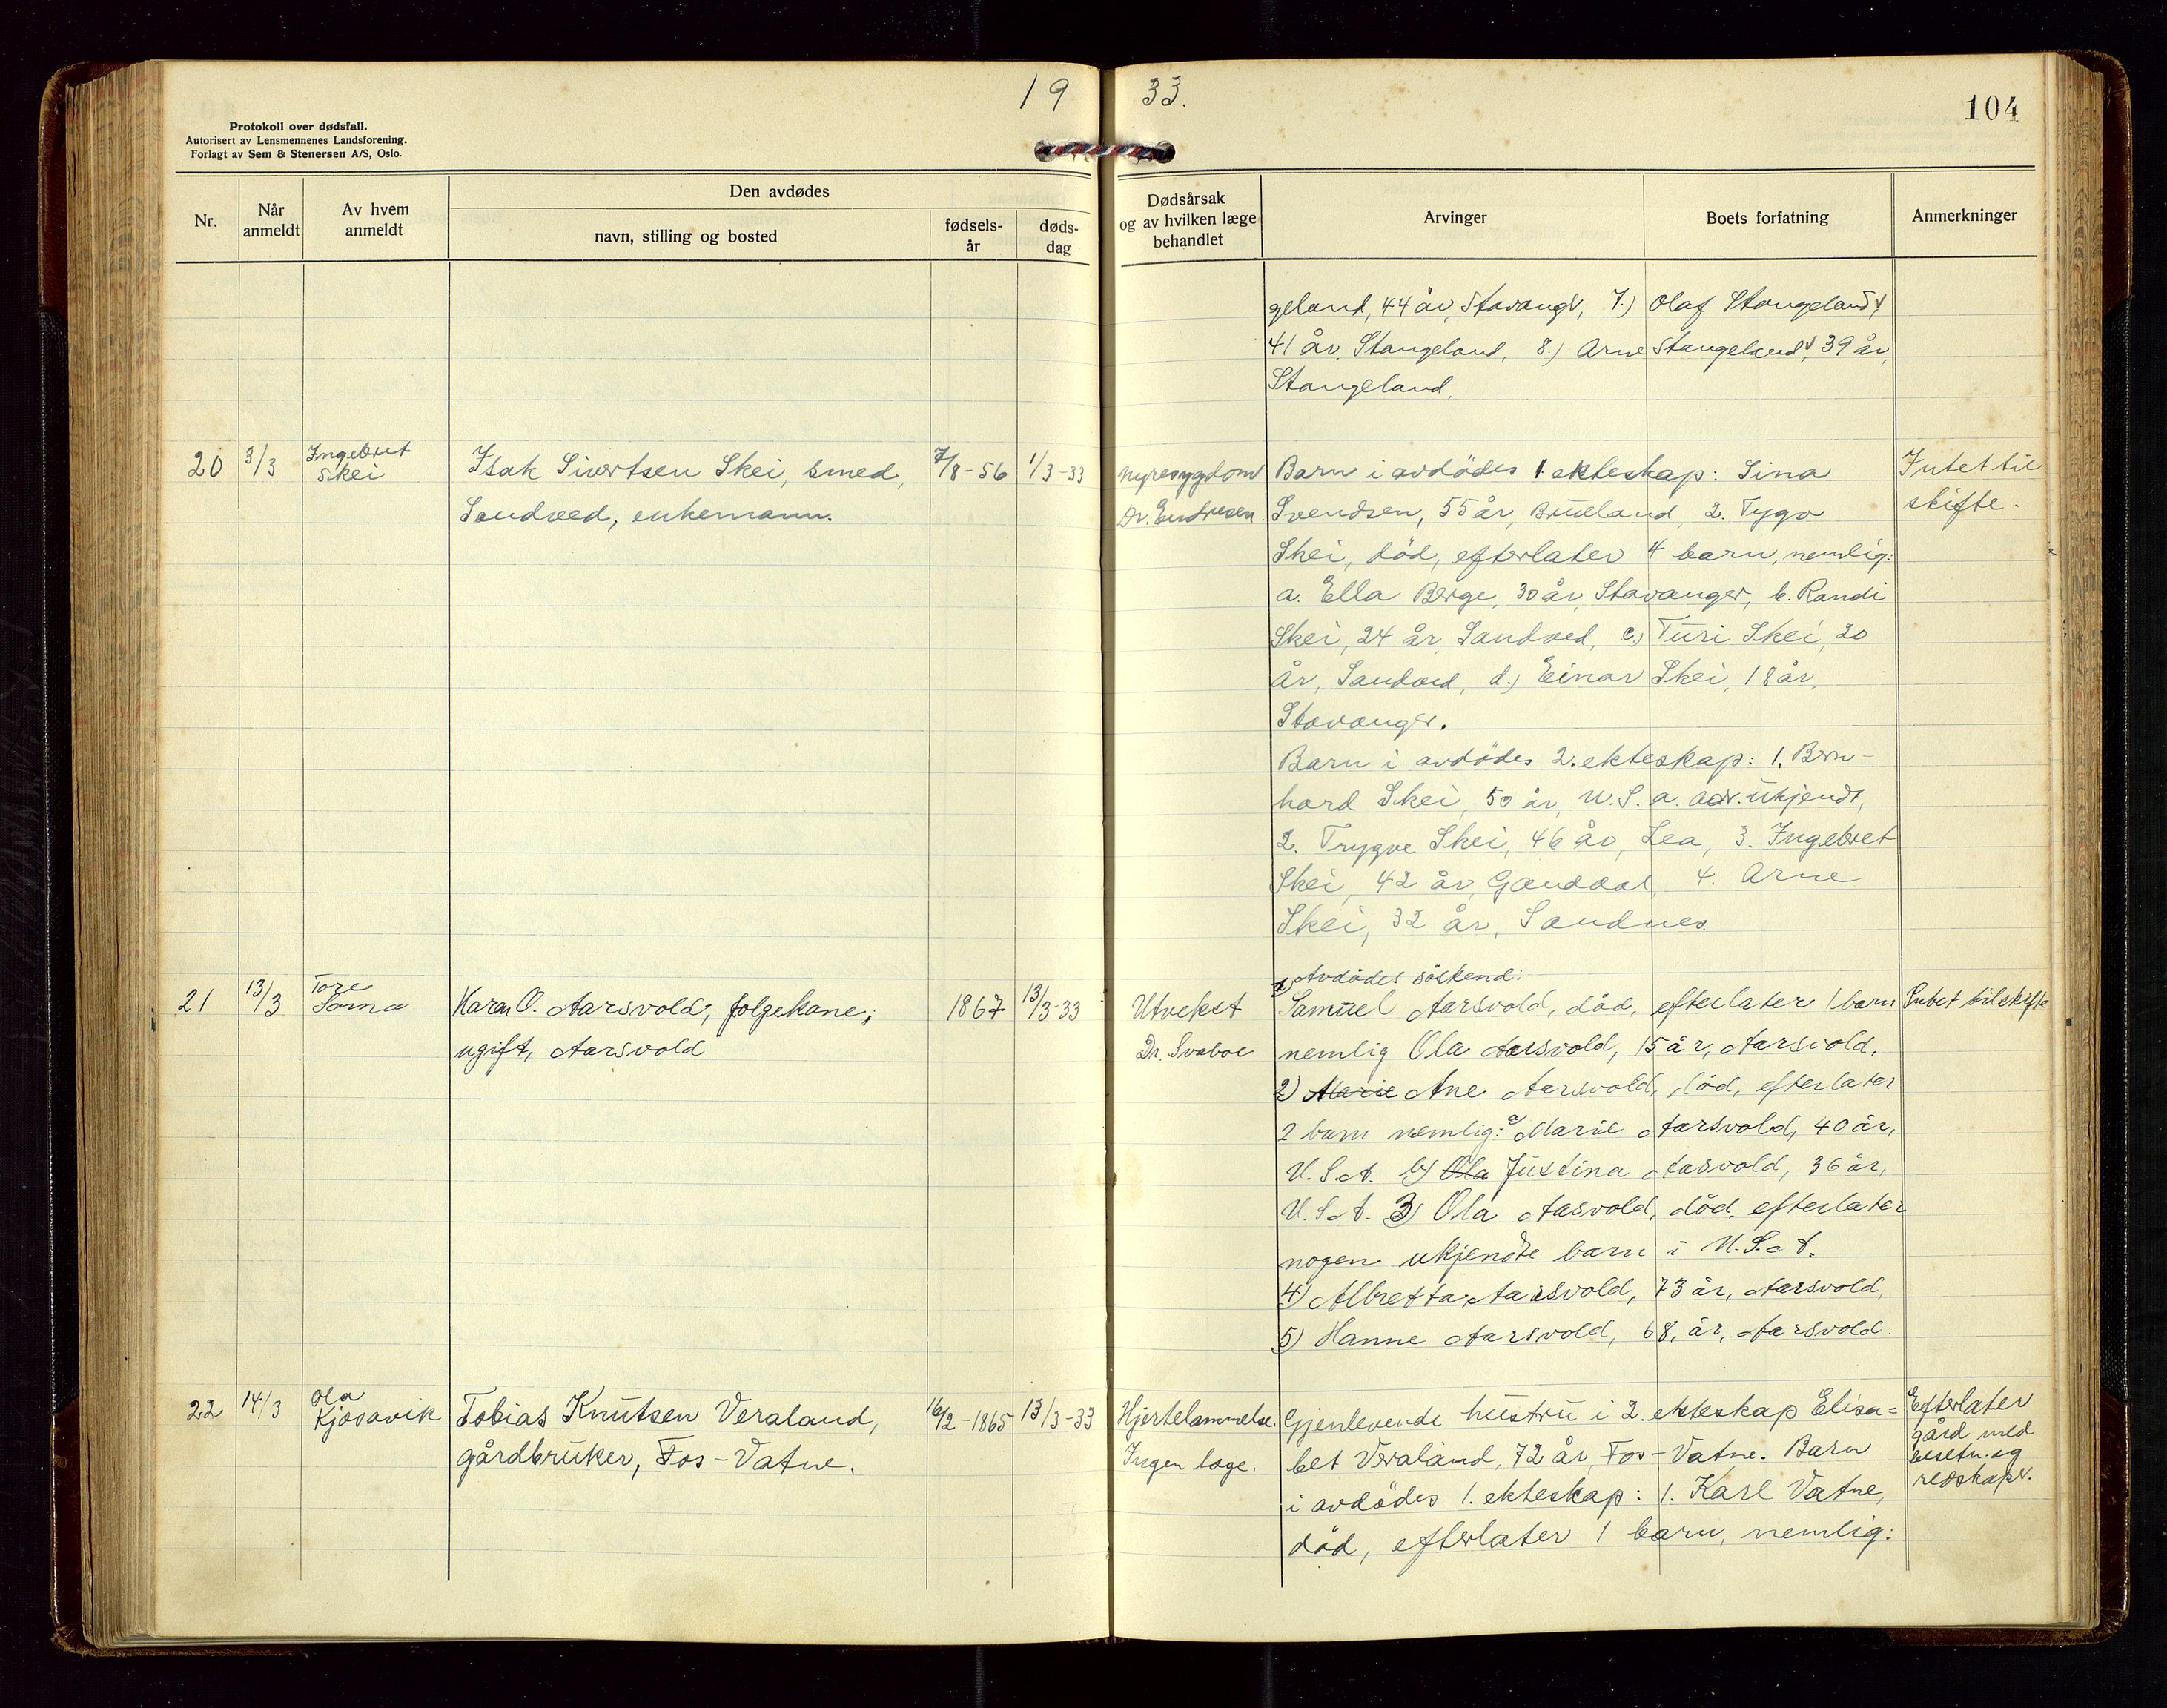 19 33.
104
Protokoll over dødsfall.
Autorisert av Lensmennenes Landsforening.
Forlagt av Sem & Stenersen A/S, Oslo.
Nr.
Når anmeldt
Av hvem anmeldt
Den avdødes
navn, stilling og bosted
fødsels-år
døds-dag
Dødsårsak og av hvilken læge behandlet
Arvinger
Boets forfatning
Anmerkninger
geland, 44 år, Stavangr, 7.) Olaf Stangeland,
41 år, Stangeland, 8.) Arne Stangeland, 39 år,
Stangeland.
20 3/3 Ingebret Skei
Isak Sivertsen Skei, smed,
Sandved, enkemann.
7/8-56 1/3-33
nyresygdom
Dr. Endresen.
Barn i avdödes 1. ekteskap: Sina
Svendsen, 55 år, Brueland, 2. Tygv
Skei, död, efterlater 4 barn, nemlig:
a. Ella Berge, 30 år, Stavanger, b. Randi
Skei, 24 år, Sandved, c.) Turi Skei, 20
år, Sandved, d.) Einar Skei, 18 år,
Stavanger.
Barn i avdödes 2. ekteskap: 1. Bern-
hard Skei, 50 år, U.S.a. adr. ukjendt,
2. Trygve Skei, 46 år, Lea, 3. Ingebret
Skei, 42 år, Ganddal, 4. Arne
Skei, 32 år, Sandnes.
Intet til
skifte.
21 13/3 Tore Soma
Karen O. Aarsvold, folgekone,
ugift, Aarsvold
1867 13/3-33
Utvekst
Dr. Svaboe
Avdødes söskend:
1) Samuel Aarsvold, död, efterlater 1 barn
nemlig Ola Aarsvold, 15 år, Aarsvold,
2) Marie Ane Aarsvold, död, efterlater
2 barn nemlig: a) Marie Aarsvold, 40 år,
U.S.A. b) Ola Justina Aasvold, 36 år,
U.S.A. 3) Ola Aasvold, död, efterlater
nogen ukjendte barn i U.S.A.
4) Albretta Aarsvold, 73 år, Aarsvold,
5) Hanne Aarsvold, 68, år, Aarsvold.
Intet til skifte
22 14/3 Ola Kjosavik
Tobias Knutsen Veraland,
gårdbruker, Fos-Vatne.
-1865 13/3-33
Hjertelammelse.
Ingen læge.
Gjenlevende hustru i 2. ekteskap Elisa=
bet Veraland, 72 år, Fos-Vatne. Barn
i avdödes 1. ekteskap: 1. Karl Vatne,
död, efterlater 1 barn, nemlig:
Efterlater
gård med
besetn. og
redskaper.